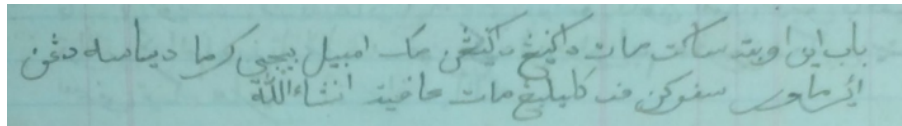 باب اين اوبت ساكت مات داݢيڠ داݢيڠن مك امبيل بيجي كرما دباسه دڠن
اير ماور سفوكن فد كليليڠ مات عافية انشاءالله